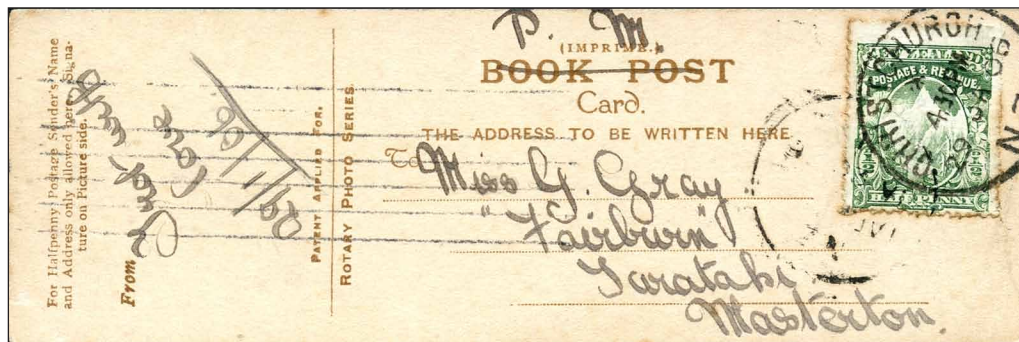 For Halfpenny Postage Sender's Name
and Address only allowed here. Signa-
ture on Picture side.
From
29/1/06
PATENT APPLIED FOR.
ROTARY PHOTO SERIES.
P. M.
(IMPRIMÉ.)
BOOK POST
Card.
THE ADDRESS TO BE WRITTEN HERE.
To
Miss G. Gray
"Fairburn"
Taratahi
Masterton.
ZEALAND
POSTAGE & REVENUE
HALF PENNY
CHRISTCHURCH
4 30 PM
29